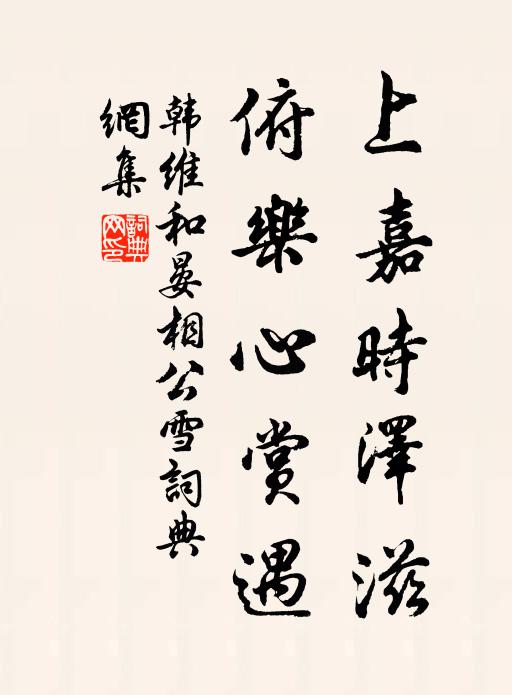 上嘉時澤滋
俯樂心賞遇
韩维和晏相公雪詞典
網集
詞典
网印